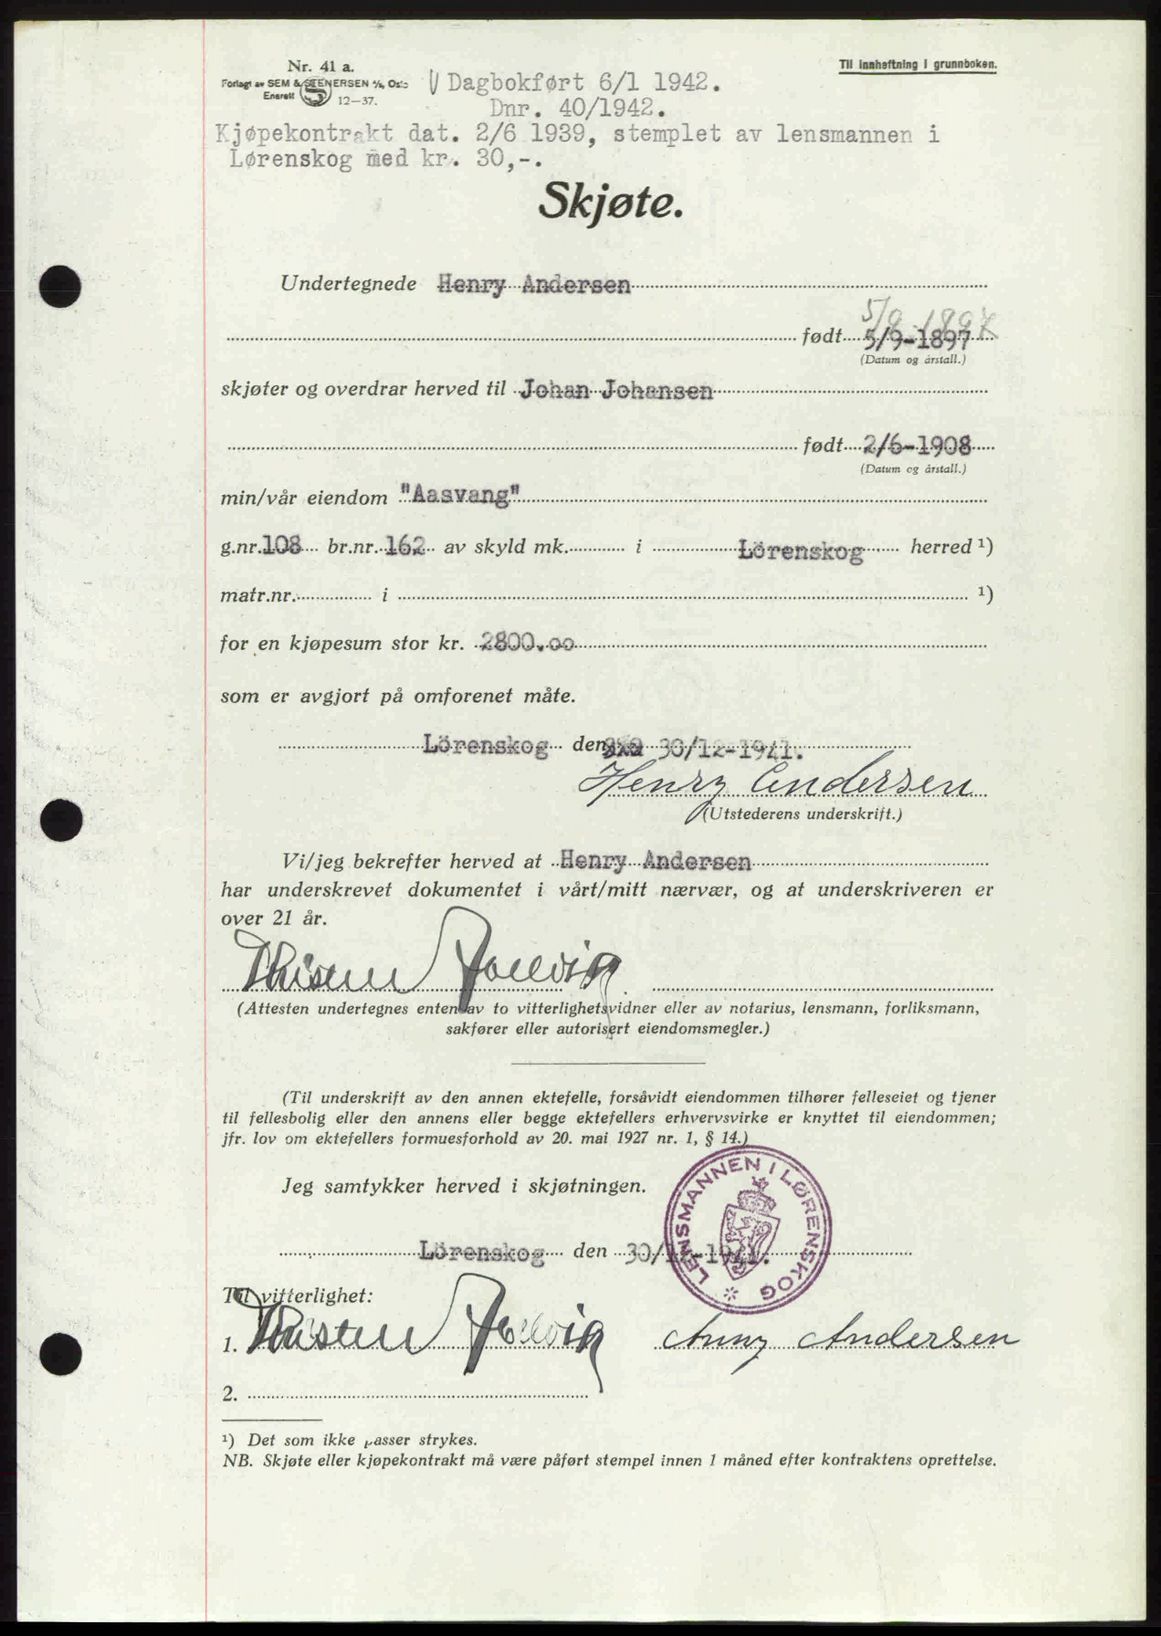 Nr. 41 a.
Forlagt av SEM & STENERSEN A/S, Oslo
Enerett S 12—37.
Til innheftning i grunnboken.
Dagbokført 6/1 1942.
Dnr. 40/1942.
Kjøpekontrakt dat. 2/6 1939, stemplet av lensmannen i
Lørenskog med kr. 30,-.
Skjøte.
Undertegnede Henry Andersen
5/9-1897
født 5/9-1897
(Datum og årstall.)
skjøter og overdrar herved til Johan Johansen
født 2/6-1908
(Datum og årstall.)
min/vår eiendom "Aasvang"
g.nr. 108 br.nr. 162 av skyld mk. i Lörenskog herred ¹)
matr.nr. i ¹)
for en kjøpesum stor kr. 2800.oo
som er avgjort på omforenet måte.
Lörenskog den 30/12-1941.
Henry Andersen
(Utstederens underskrift.)
Vi/jeg bekrefter herved at Henry Andersen
har underskrevet dokumentet i vårt/mitt nærvær, og at underskriveren er
over 21 år.
(Attesten undertegnes enten av to vitterlighetsvidner eller av notarius, lensmann, forliksmann,
sakfører eller autorisert eiendomsmegler.)
(Til underskrift av den annen ektefelle, forsåvidt eiendommen tilhører felleseiet og tjener
til fellesbolig eller den annens eller begge ektefellers erhvervsvirke er knyttet til eiendommen;
jfr. lov om ektefellers formuesforhold av 20. mai 1927 nr. 1, § 14.)
LENSMANNEN I LØRENSKOG
Jeg samtykker herved i skjøtningen.
Lörenskog den 30/12-1941.
Til vitterlighet:
1. Anny Andersen
2.
¹) Det som ikke passer strykes.
NB. Skjøte eller kjøpekontrakt må være påført stempel innen 1 måned efter kontraktens oprettelse.